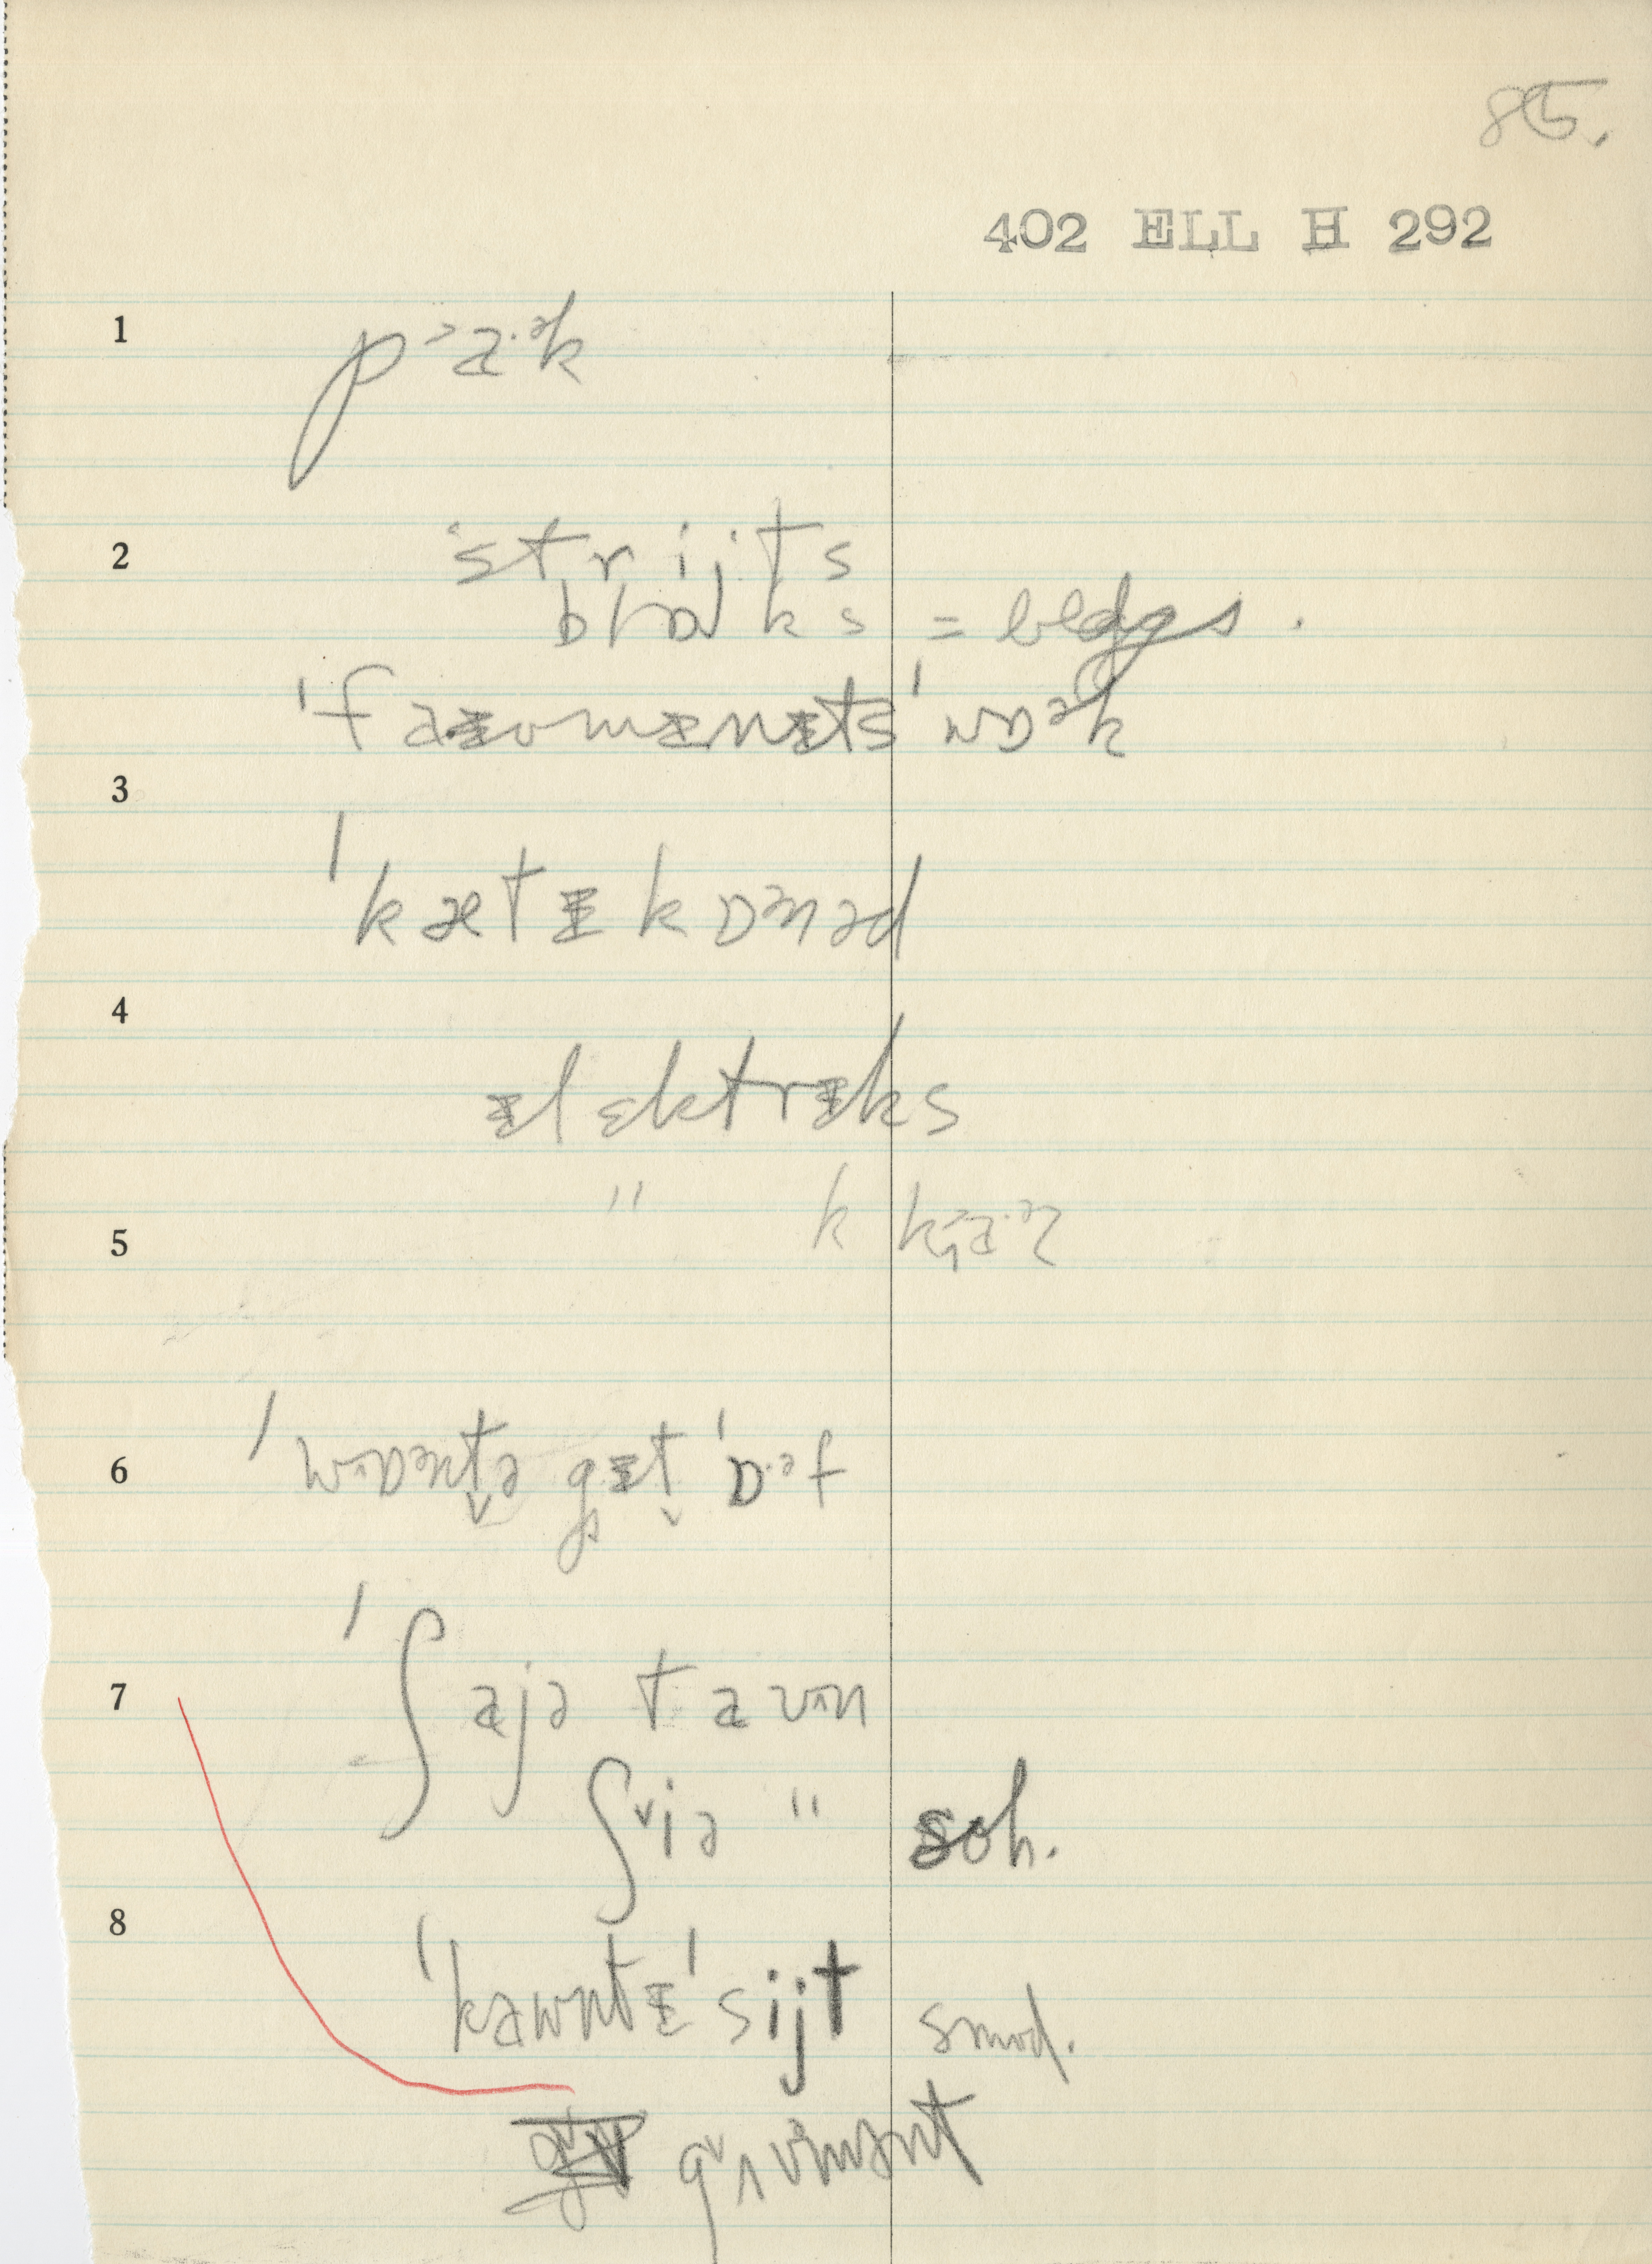 85.
402 ELL H 292
1 p˃a·ᵊk
2 ˈstrijts
blɒks = bldgs.
ˈfaɪvmɪnɪtsˈwɒᵊk
3
ˈkætɪkɒᵊnəd
4
ɪlɛktrɪks
" k
5
6 ˈwɒᵊntə gɪt ˈɒ·ᵊf
7 ˈʃajə tawn
ʃiə " soh.
8
ˈkawntɪˈsijt smod.
gʌvmənt